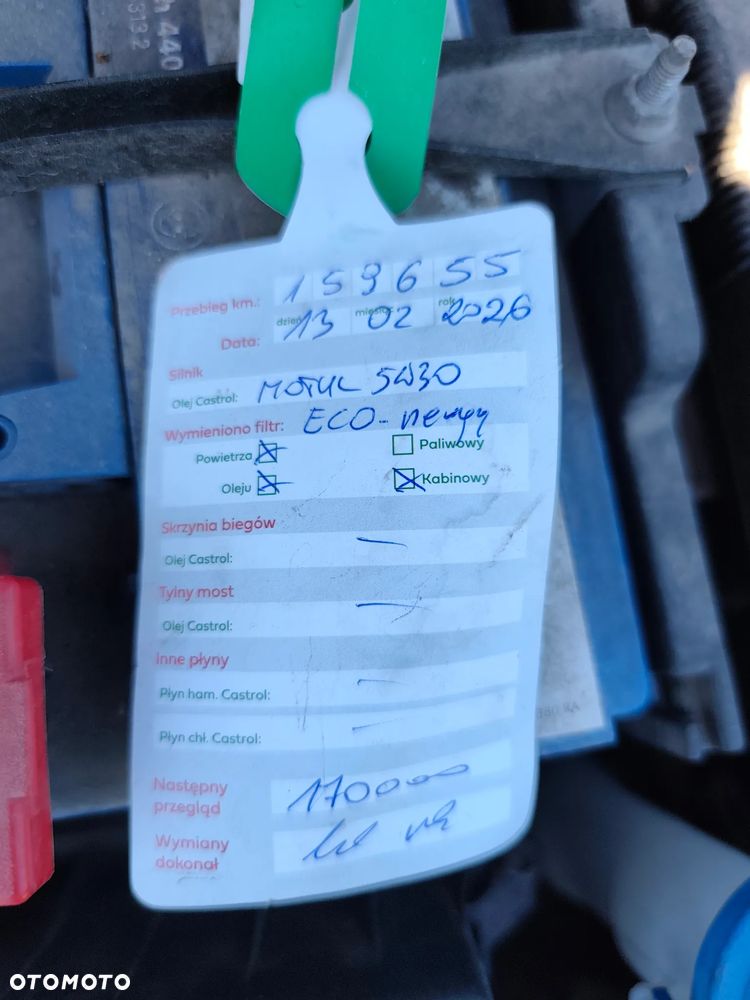 h 440
313 2
Przebieg km.: 159655
dzień miesiąc rok
Data: 13 02 2026
Silnik
Olej Castrol: MOTUL 5W30
Wymieniono filtr: ECO-nergy
Powietrza Paliwowy
Oleju Kabinowy
Skrzynia biegów
Olej Castrol: —
Tylny most
Olej Castrol: —
Inne płyny
Płyn ham. Castrol: —
Płyn chł. Castrol: —
Następny przegląd 170000
Wymiany dokonał
OTOMOTO